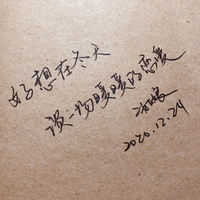 好想在冬天
谈一场暖暖的恋爱
2020.12.24